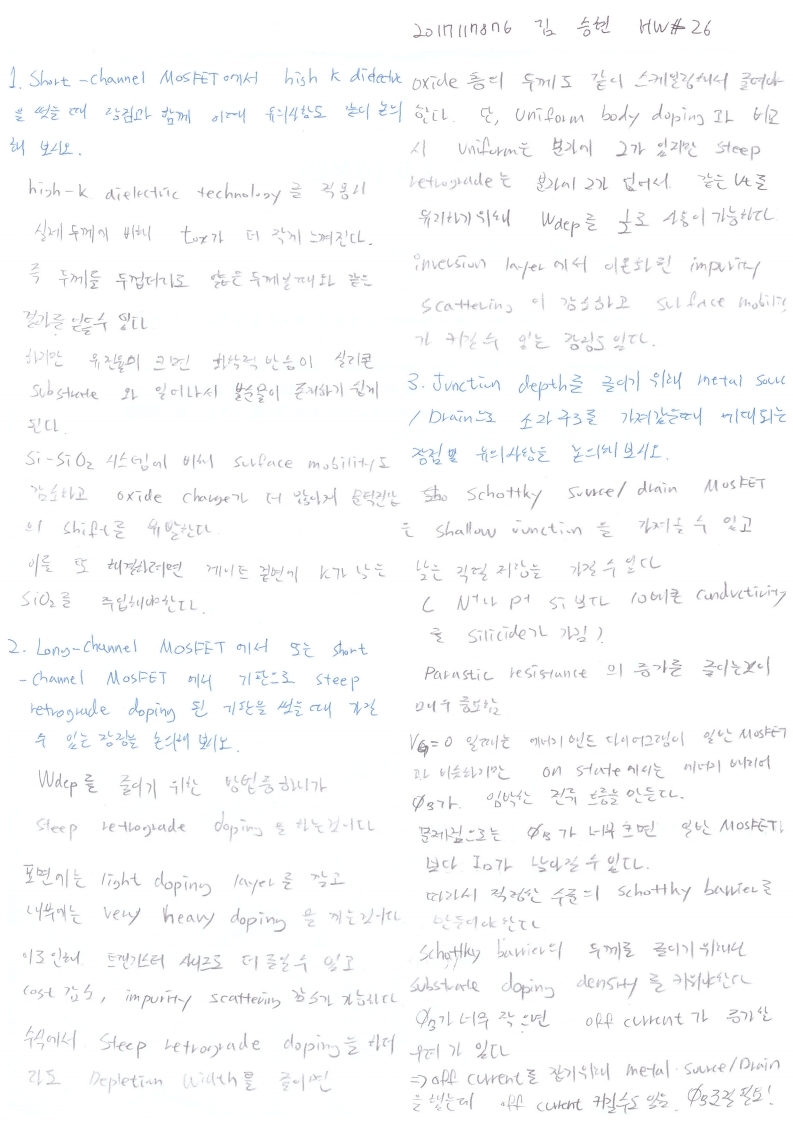 2017117876 김 승현 HW# 26
1. Short-channel MOSFET에서 high k dielectric
을 썼을 때 장점과 함께 이때 유의사항도 같이 논의
해 보시오.
high-k dielectric technology를 적용시
실제 두께에 비해 tox가 더 작게 느껴진다.
즉 두께를 두껍더라도 얇은 두께일때와 같은
결과를 얻을수 있다
하지만 유전율이 크면 화학적 반응이 실리콘
substrate 와 일어나서 불순물이 존재하기 쉽게
된다.
Si-SiO2 시스템에 비해 surface mobility도
감소하고 oxide charge가 더 많아져 문턱전압
의 shift를 유발한다.
이를 또 해결하려면 게이트 겉면에 k가 낮은
SiO2를 주입해야한다.
2. Long-channel MOSFET에서 또는 short
-channel MOSFET 에서 기판으로 steep
retrograde doping 된 기판을 썼을 때 가질
수 있는 장점을 논의해 보시오.
Wdep를 줄이기 위한 방법중 하나가
steep retrograde doping을 하는것이다
표면에는 light doping layer를 깔고
내부에는 very heavy doping을 까는것이다
이로 인해 트랜지스터 사이즈도 더 줄일수 있고
cost 감소, impurity scattering 감소가 가능하다
수식에서 steep retrograde doping을 하더
라도 Depletion width를 줄이면
oxide 층의 두께도 같이 스케일링해서 줄여야
한다. 단, uniform body doping 과 비교
시 uniform은 분자에 2가 있지만 steep
retrograde는 분자에 2가 없어서 같은 Vt를
유지하기위해 Wdep를 1/2로 사용이 가능하다
inversion layer에서 이온화된 impurity
scattering이 감소하고 surface mobility
가 커질 수 있는 장점도 있다.
3. Junction depth를 줄이기 위해 metal sourc
/ Drain으로 소자 구조를 가져갔을때 기대되는
장점 및 유의사항을 논의해 보시오.
schottky source/drain MOSFET
은 shallow junction 을 가져올 수 있고
낮은 직렬 저항을 가질 수 있다
( N+나 P+ Si 보다 10배큰 conductivity
를 silicide가 가짐 )
Parastic resistance 의 증가를 줄이는것이
매우 중요함
VG=0 일때는 에너지 밴드 다이어그램이 일반 MOSFET
과 비슷하지만 on state에서는 에너지 베리어
ΦB가 임박한 전류 흐름을 만든다.
문제점으로는 ΦB가 너무 크면 일반 MOSFET
보다 ID가 낮아질 수 있다.
따라서 적정한 수준의 schottky barrier를
만들어야 한다
Schottky barrier의 두께를 줄이기 위해선
substrate doping density를 키워야한다
ΦB가 너무 작으면 off current가 증가할
우려가 있다
=> off current를 잡기위해 metal source/Drain
을 했는데 off current 커질수도 있음. ΦB조절 필요!